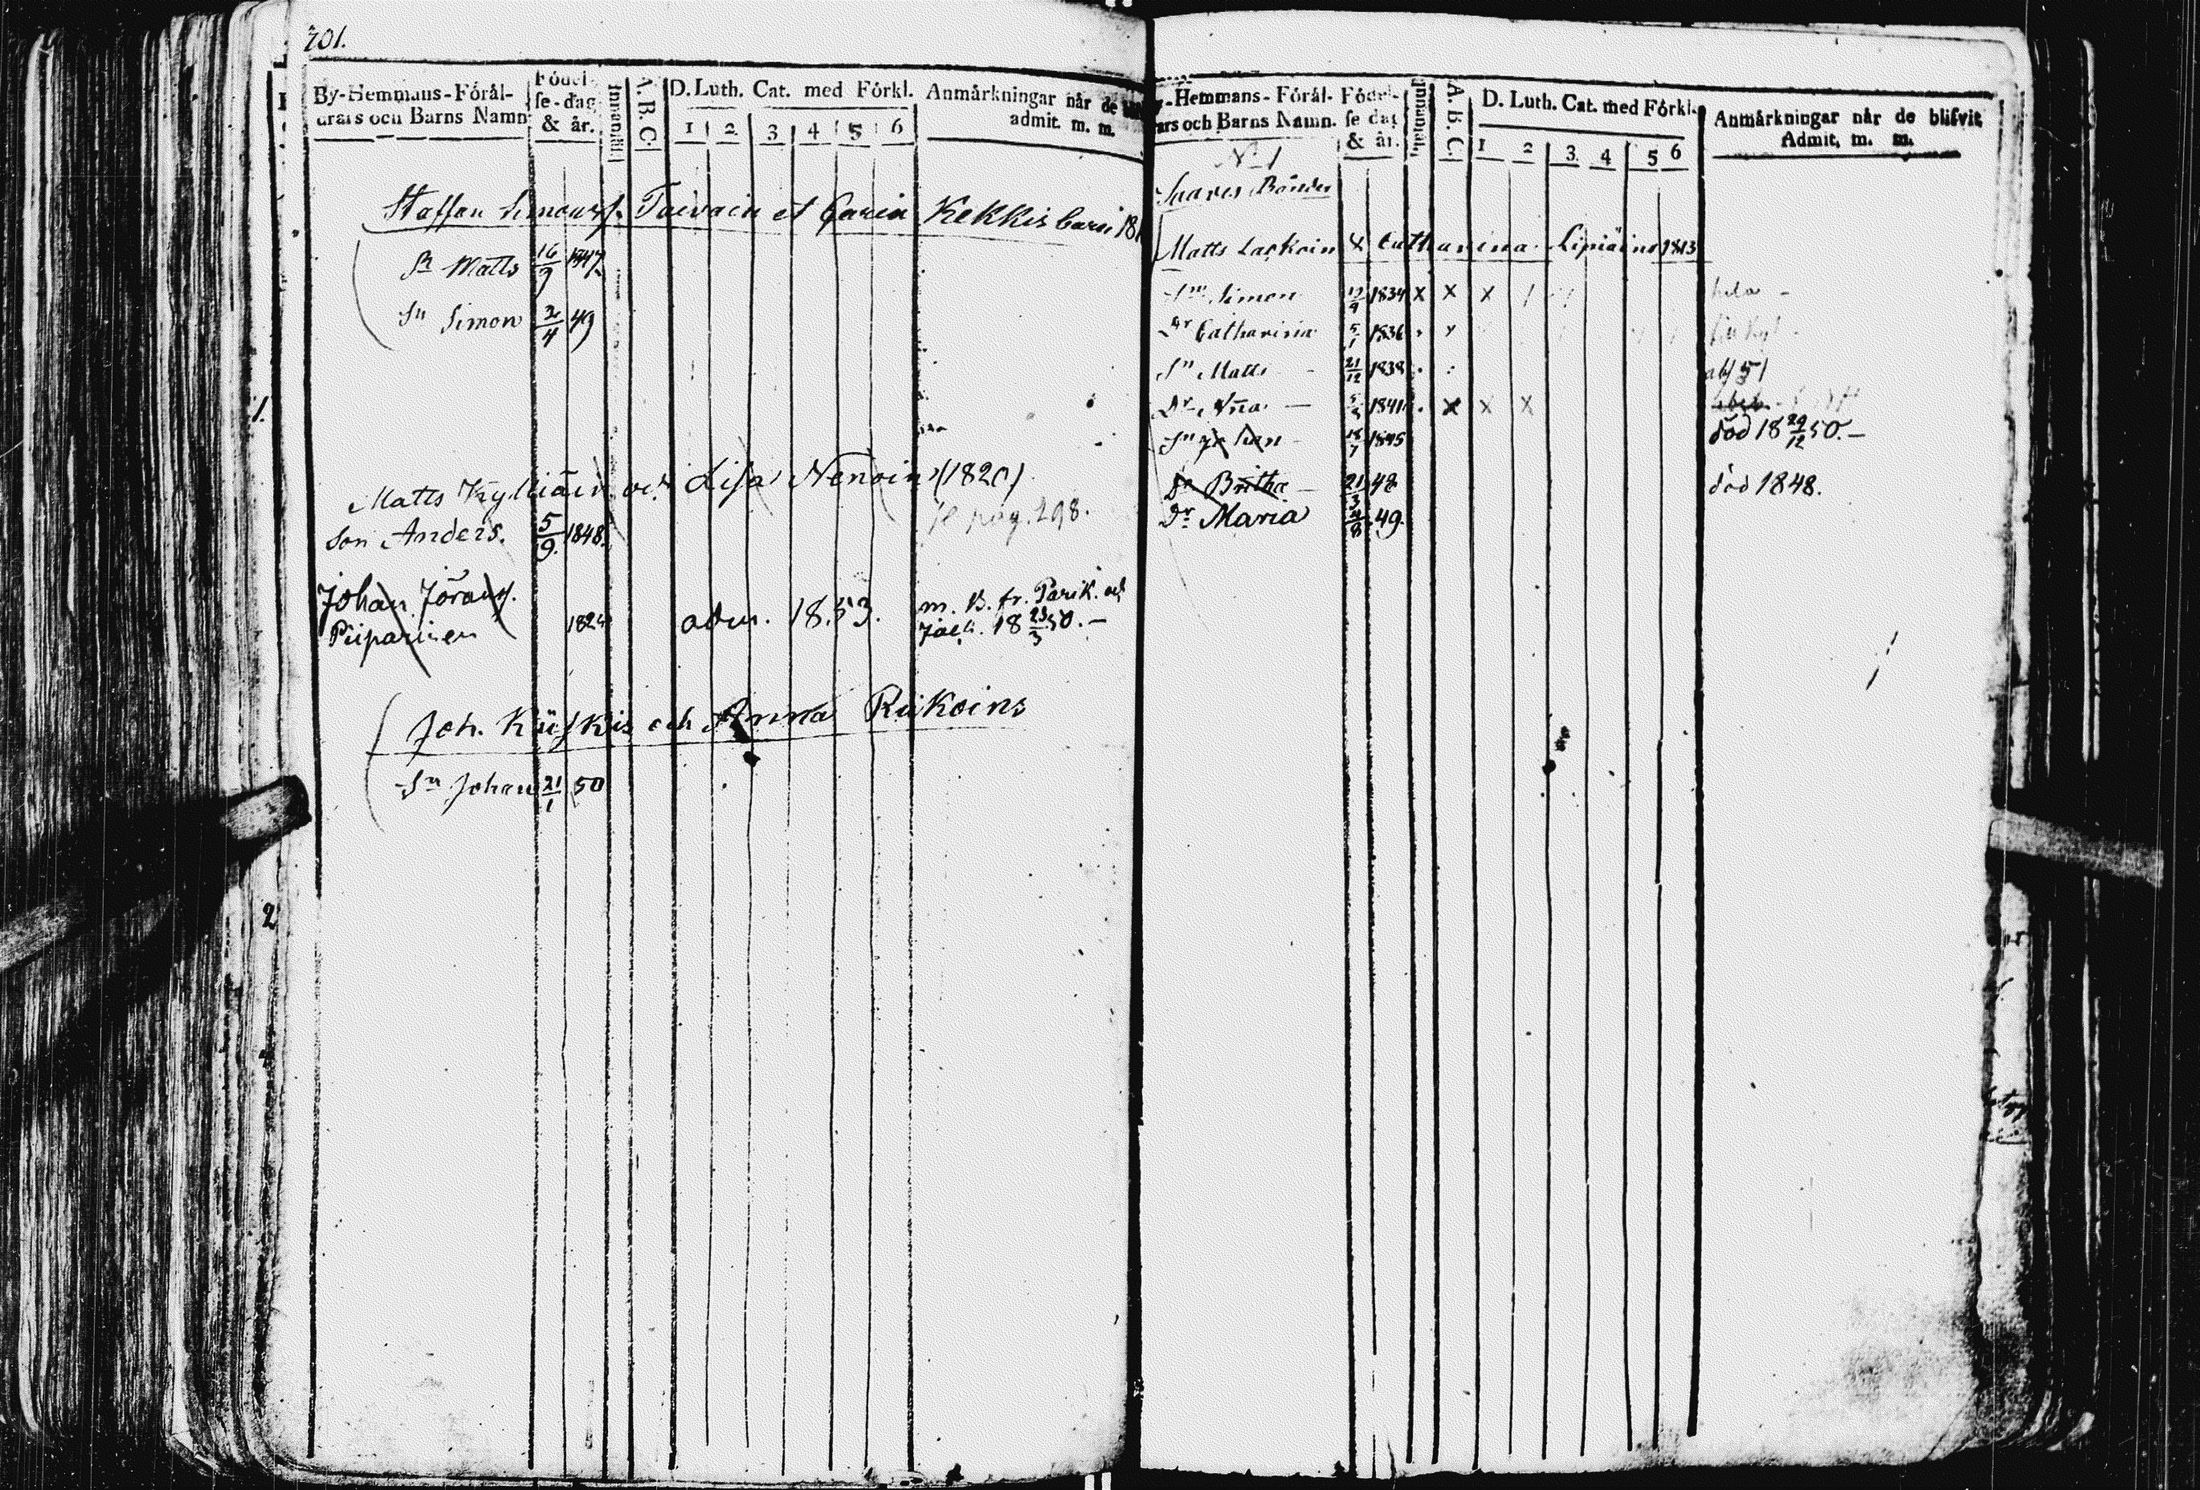 701.
By-Hemmans-Föräl-
drars och Barns Namn
Födel-
se-dag
& år.
Innanläs.
A. B. C.
D. Luth. Cat. med Förkl.
1 2 3 4 5 6
Anmärkningar när de
admit. m. m.
Staffan Simonss. Taivain et Carin Kekkis barn 18
Sn Matts 16/9 1847
Sn Simon 2/4 49
Matts Kylliäin och Lisa Nenoin (1820)
son Anders. 5/9 1848.
pag. 298.
Johan Jörang.
Piiparinen 1824 adm. 1853.
m. B. fr. Parik. och
Jack. 18 23/3 50. –
Joh. Käÿkis och Anna Rikoins
Sn Johan 21/1 50
-Hemmans-Föräl-
rars och Barns Namn.
Födel-
se dag
& år.
Innanläs.
A. B. C.
D. Luth. Cat. med Förkl.
1 2 3 4 5 6
Anmärkningar när de blifvit
Admit. m. m.
No 1
Bönder
Matts Lackoin & Catharina Lipiäins 1813
Sn Simon 12/9 1834 x x x
Dr Catharina 5/1 1836
Sn Matts 21/12 1838
Dr Anna 1841 x x x
Sn Johan 18/7 1845 död 18 29/12 50. –
Dr Britha 21/3 48 död 1848.
Dr Maria 4/8 49.